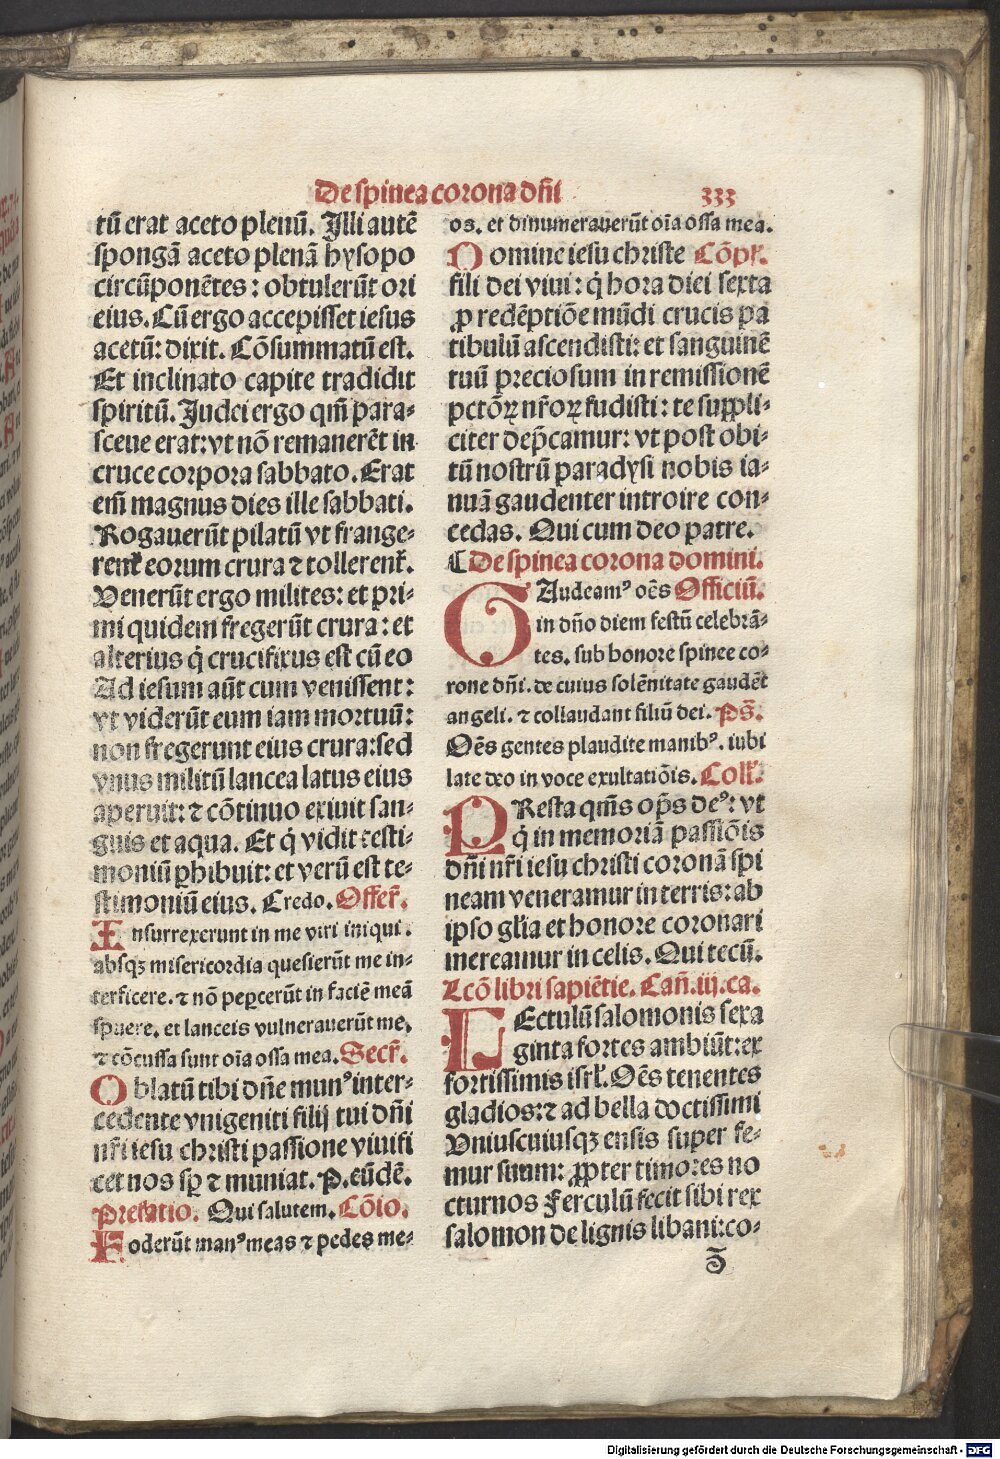 De spinea corona dñi 333
tū erat aceto plenū. Illi autē
spongā aceto plenā hysopo
circūponētes: obtulerūt ori
eius. Cū ergo accepisset iesus
acetū: dixit. Cōsummatū est.
Et inclinato capite tradidit
spiritū. Judei ergo qm̄ para-
sceue erat: vt nō remanerēt in
cruce corpora sabbato. Erat
em̄ magnus dies ille sabbati.
Rogauerūt pilatū vt frange-
renť eorum crura ⁊ tollerenť.
Venerūt ergo milites: et pri-
mi quidem fregerūt crura: et
alterius q̇ crucifixus est cū eo
Ad iesum aūt cum venissent:
vt viderūt eum iam mortuū:
non fregerunt eius crura: sed
vnus militū lancea latus eius
aperuit: ⁊ cōtinuo exiuit san-
guis et aqua. Et q̇ vidit testi-
moniū ꝑhibuit: et verū est te-
stimoniū eius. Credo. Offer̄.
Insurrexerunt in me viri iniqui.
absqꝫ misericordia quesierūt me in-
terficere. ⁊ nō peꝑcerūt in faciē meā
spuere. et lanceis vulnerauerūt me,
⁊ cōcussa sunt oīa ossa mea. Secr̄.
Oblatū tibi dn̄e munꝰ inter-
cedente vnigeniti filij tui dn̄i
nr̄i iesu christi passione viuifi
cet nos sꝑ ⁊ muniat. P. eūdē.
Prefatio. Qui salutem. Cōio.
Foderūt manꝰ meas ⁊ pedes me-
os. et dinumerauerūt oīa ossa mea.
Domine iesu christe Cōpľ.
fili dei viui: q̇ hora diei sexta
ꝓ redēptiōe mūdi crucis pa
tibulū ascendisti: et sanguinē
tuū preciosum in remissionē
pctōꝝ nr̄oꝝ fudisti: te suppli-
citer dep̄camur: vt post obi-
tū nostrū paradysi nobis ia-
nuā gaudenter introire con-
cedas. Qui cum deo patre.
¶ De spinea corona domini.
GAudeamꝰ oēs Officiū.
in dn̄o diem festū celebrā-
tes. sub honore spinee co-
rone dn̄i. de cuius solēnitate gaudēt
angeli. ⁊ collaudant filiū dei. Ps̄.
Oēs gentes plaudite manibꝰ. iubi
late deo in voce exultatiōis. Colľ.
PResta qm̄s op̄s deꝰ: vt
q̇ in memoriā passiōis
dn̄i nr̄i iesu christi coronā spi
neam veneramur in terris: ab
ipso gľia et honore coronari
mereamur in celis. Qui tecū.
Lcō libri sapiētie. Can̄. iij. ca.
LEctulū salomonis sexa
ginta fortes ambiūt: ex
fortissimis isrľ. Oēs tenentes
gladios: ⁊ ad bella doctissimi
Vniuscuiusqꝫ ensis super fe-
mur suum: ꝓpter timores no
cturnos Ferculū fecit sibi rex
salomon de lignis libani: co-
Digitalisierung gefördert durch die Deutsche Forschungsgemeinschaft - DFG